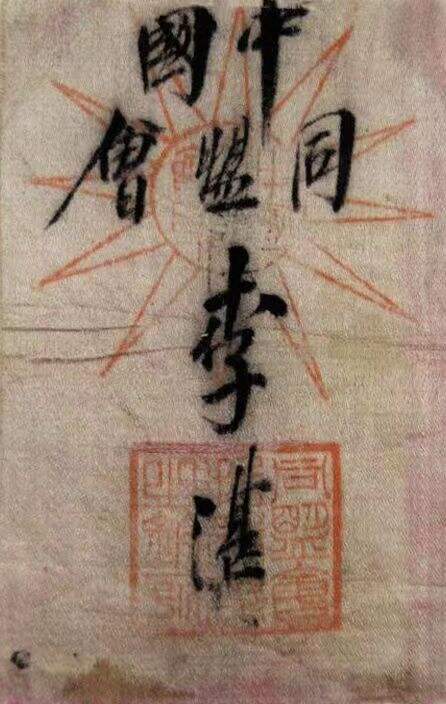 中國
同盟會
李湛